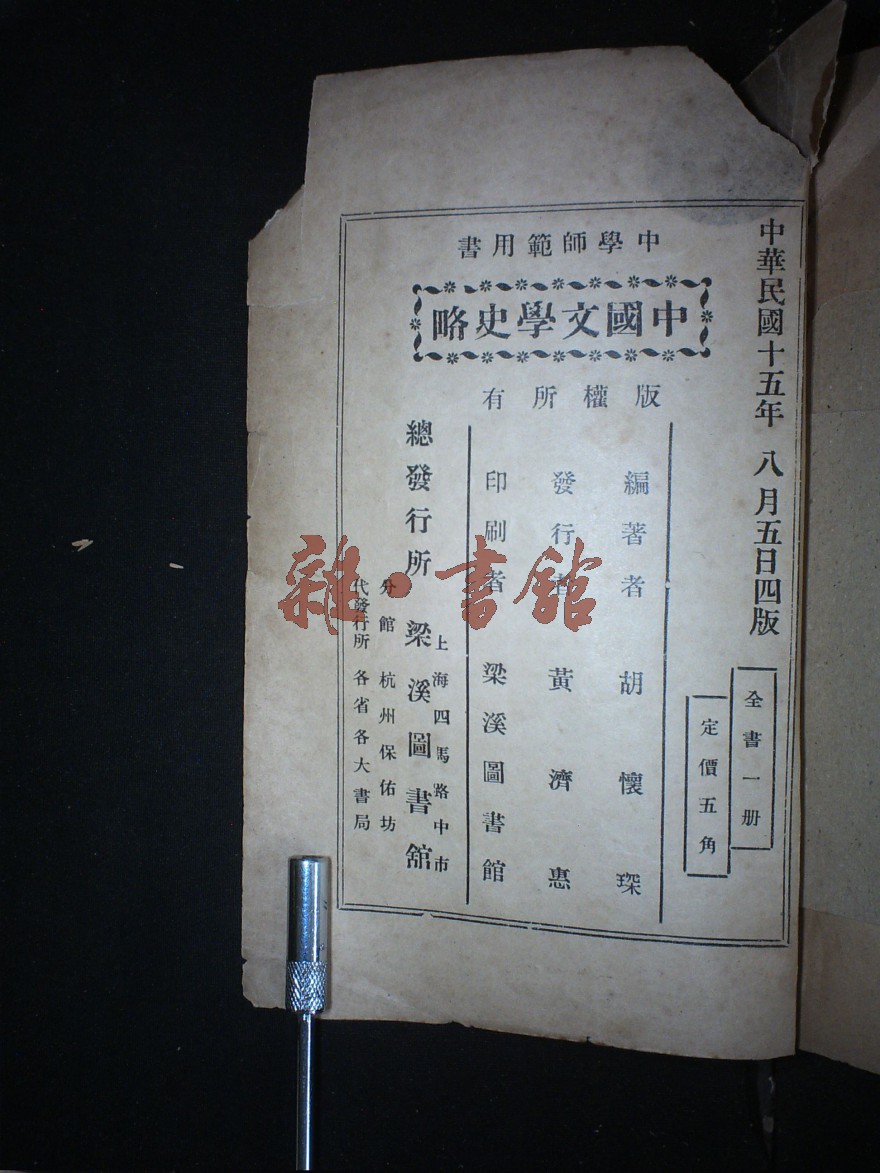 中華民國十五年 八月五日四版
全書一册
定價五角
中學師範用書
中國文學史略
版權所有
編著者 胡懷琛
發行者 黃濟惠
印刷者 梁溪圖書館
上海四馬路中市
總發行所 梁溪圖書館
分館 杭州保佑坊
代發行所 各省各大書局
雜·書館